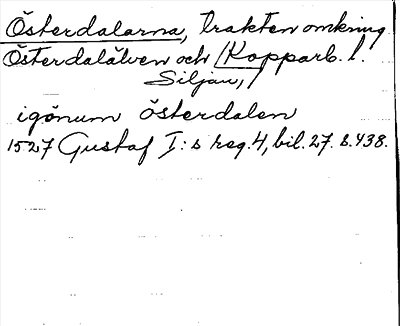 Österdalarna, trakten omkring
Österdalälven och / Kopparb. l.
Siljan, /
igönum österdalen
1527 Gustaf I:s reg. 4, bil. 27. s. 438.